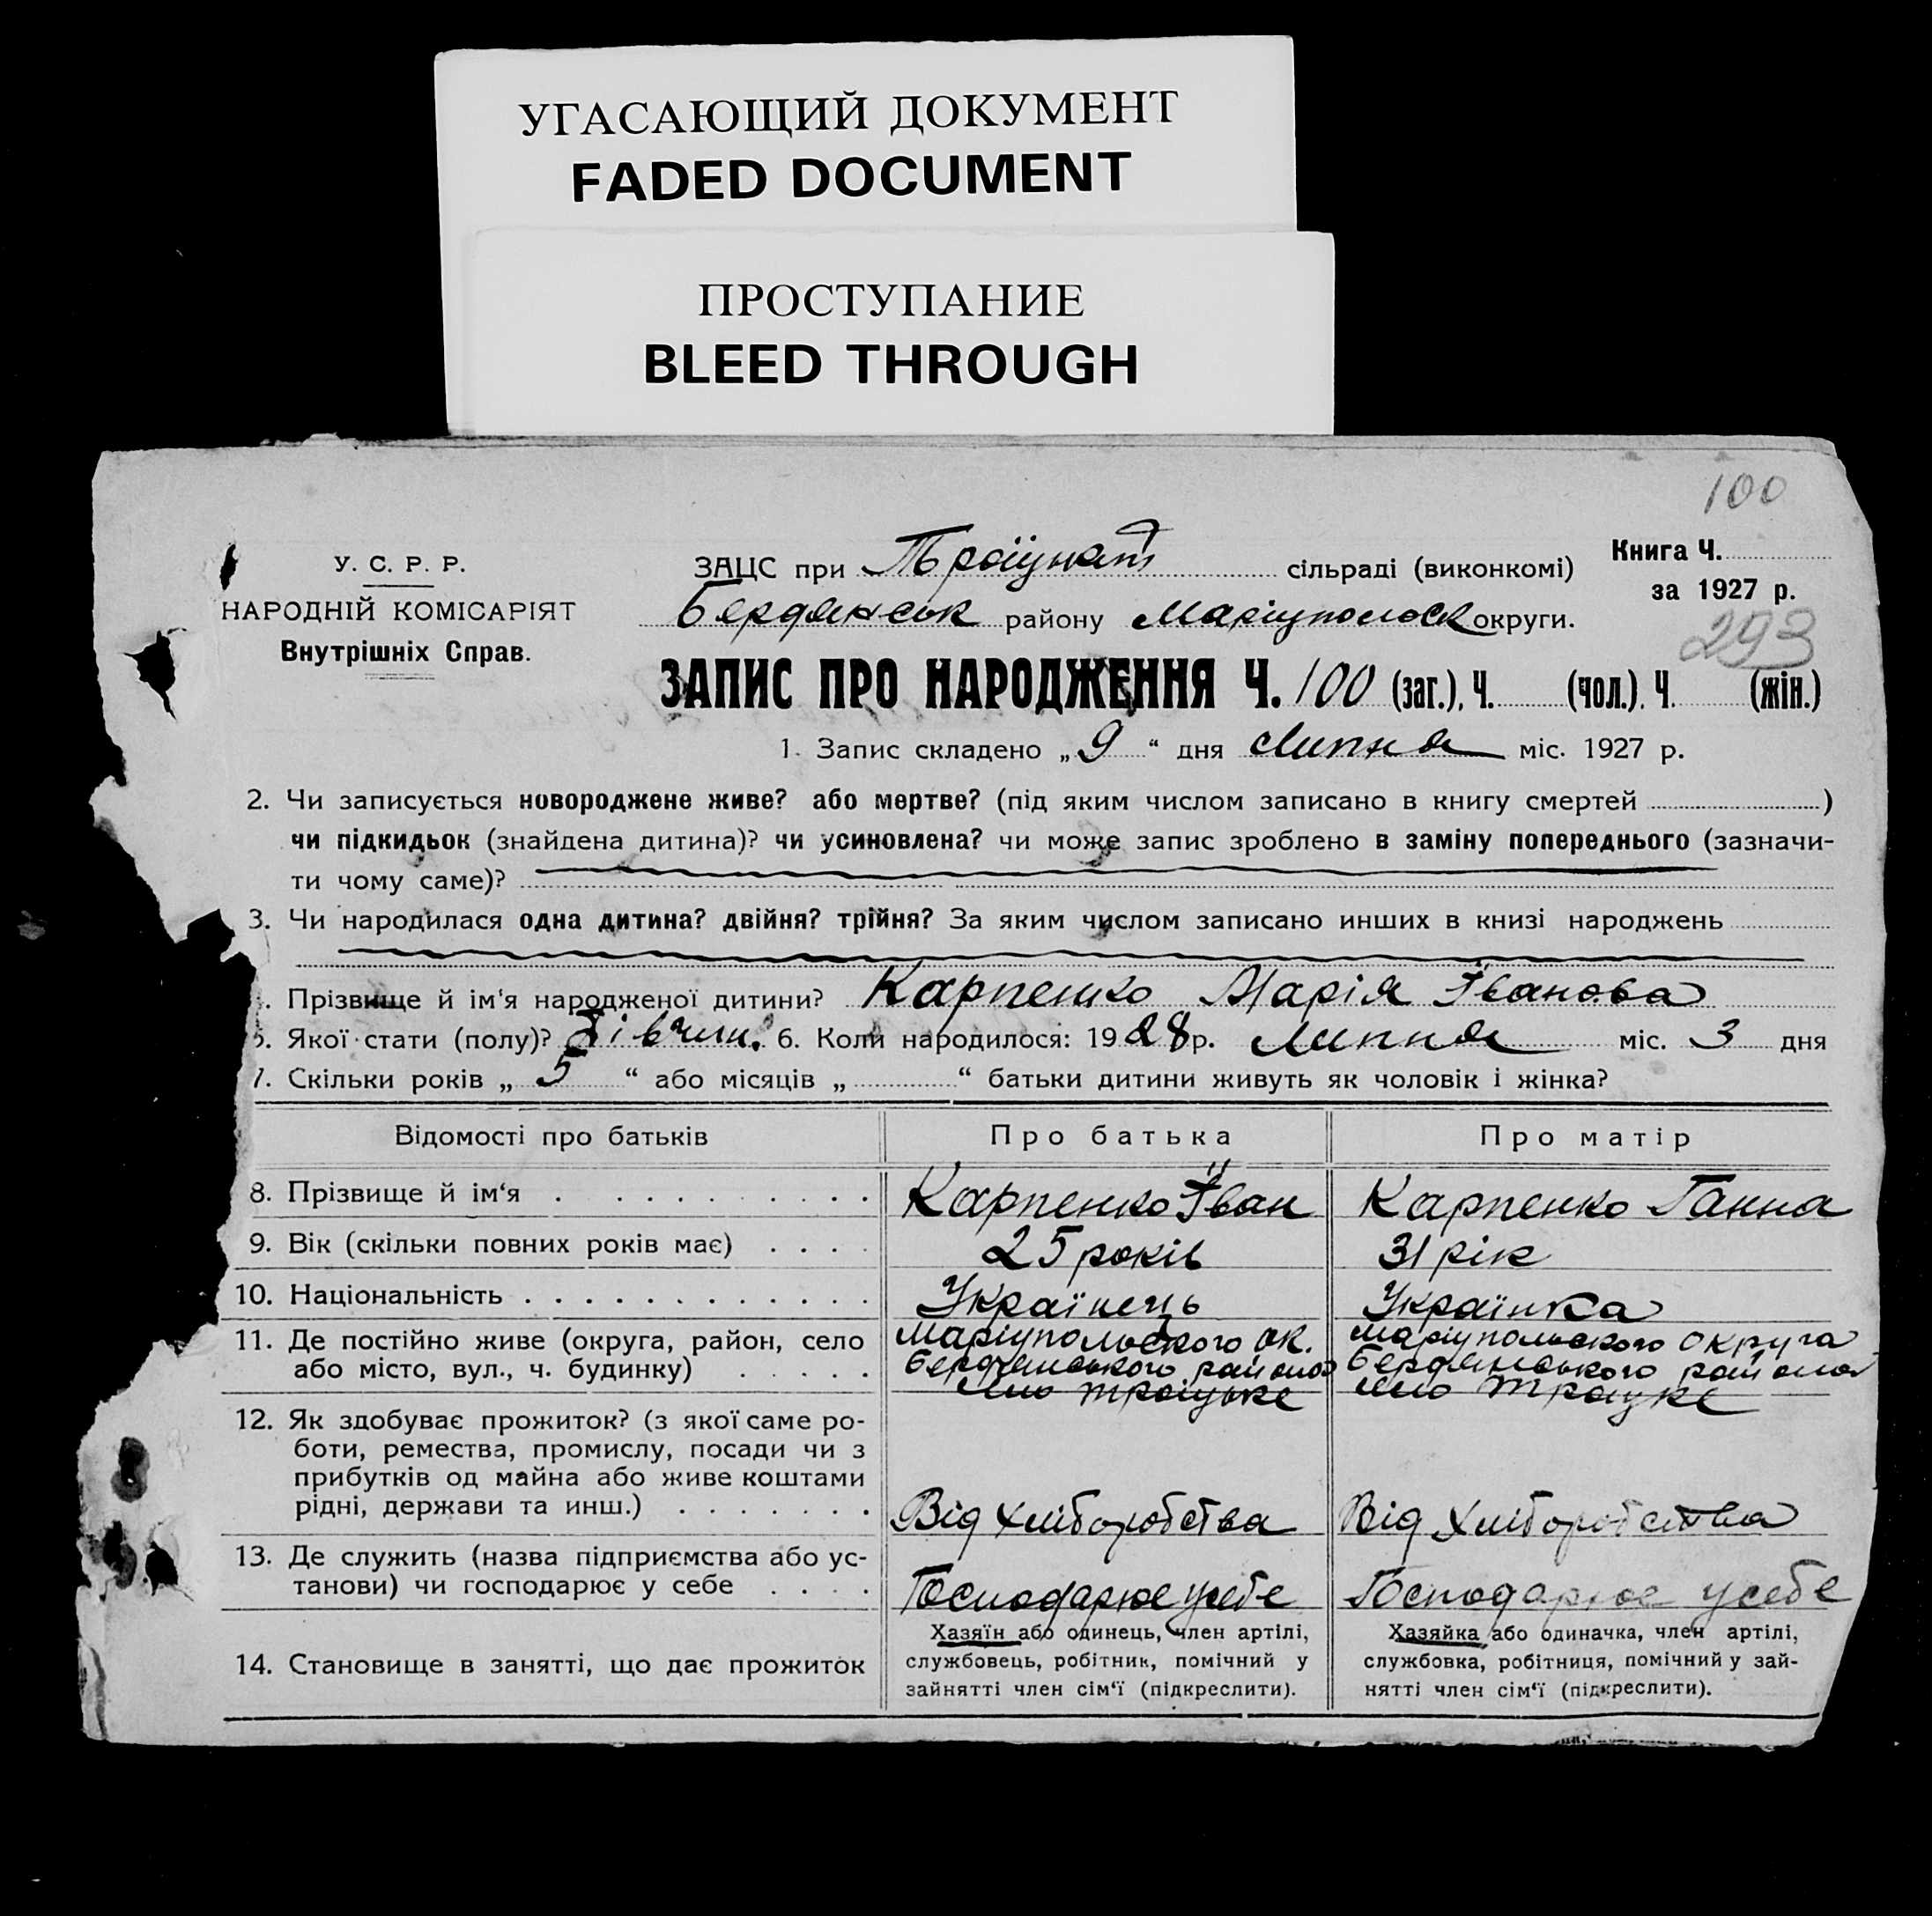 УГАСАЮЩИЙ ДОКУМЕНТ
FADED DOCUMENT
ПРОСТУПАНИЕ
BLEED THROUGH
100
У. С. Р. Р.
НАРОДНІЙ КОМІСАРІЯТ
Внутрішніх Справ.
ЗАЦС при сільраді (виконкомі)
Бердянськ району Маріупольськ округи.
Книга Ч.
за 1927 р.
293
ЗАПИС ПРО НАРОДЖЕННЯ Ч. 100 (заг.), Ч. (чол.), Ч. (жін.)
1. Запис складено „9“ дня Липня міс. 1927 р.
2. Чи записується новороджене живе? або мертве? (під яким числом записано в книгу смертей )
чи підкидьок (знайдена дитина)? чи усиновлена? чи може запис зроблено в заміну попереднього (зазначи-
ти чому саме)?
3. Чи народилася одна дитина? двійня? трійня? За яким числом записано инших в книзі народжень
. Прізвище й ім'я народженої дитини? Карпенко Марія Іванова
5. Якої стати (полу)? Дівчин. 6. Коли народилося: 1928 р. Липня міс. 3 дня
7. Скільки років „ 5 “ або місяців „ “ батьки дитини живуть як чоловік і жінка?
Відомості про батьків Про батька Про матір
8. Прізвище й ім'я . . . . . . . . . Карпенко Іван Карпенко Ганна
9. Вік (скільки повних років має) . . . . 25 років 31 рік
10. Національність . . . . . . . . . . . . . Українець Українка
11. Де постійно живе (округа, район, село
або місто, вул., ч. будинку) . . . . .
Маріупольского ок.
Бердянського района
село Троіцьке
Маріупольского округа
Бердянського района
село Троіцке
12. Як здобуває прожиток? (з якої саме ро-
боти, ремества, промислу, посади чи з
прибутків од майна або живе коштами
рідні, держави та инш.) . . . . . . .
Від хліборобства
Від хліборобства
13. Де служить (назва підприємства або ус-
танови) чи господарює у себе . . . .
Господарює у себе
Господарює у себе
14. Становище в занятті, що дає прожиток
Хазяїн або одинець, член артілі,
службовець, робітник, помічний у
зайнятті член сім'ї (підкреслити).
Хазяйка або одиначка, член артілі,
службовка, робітниця, помічний у зай-
нятті член сім'ї (підкреслити).